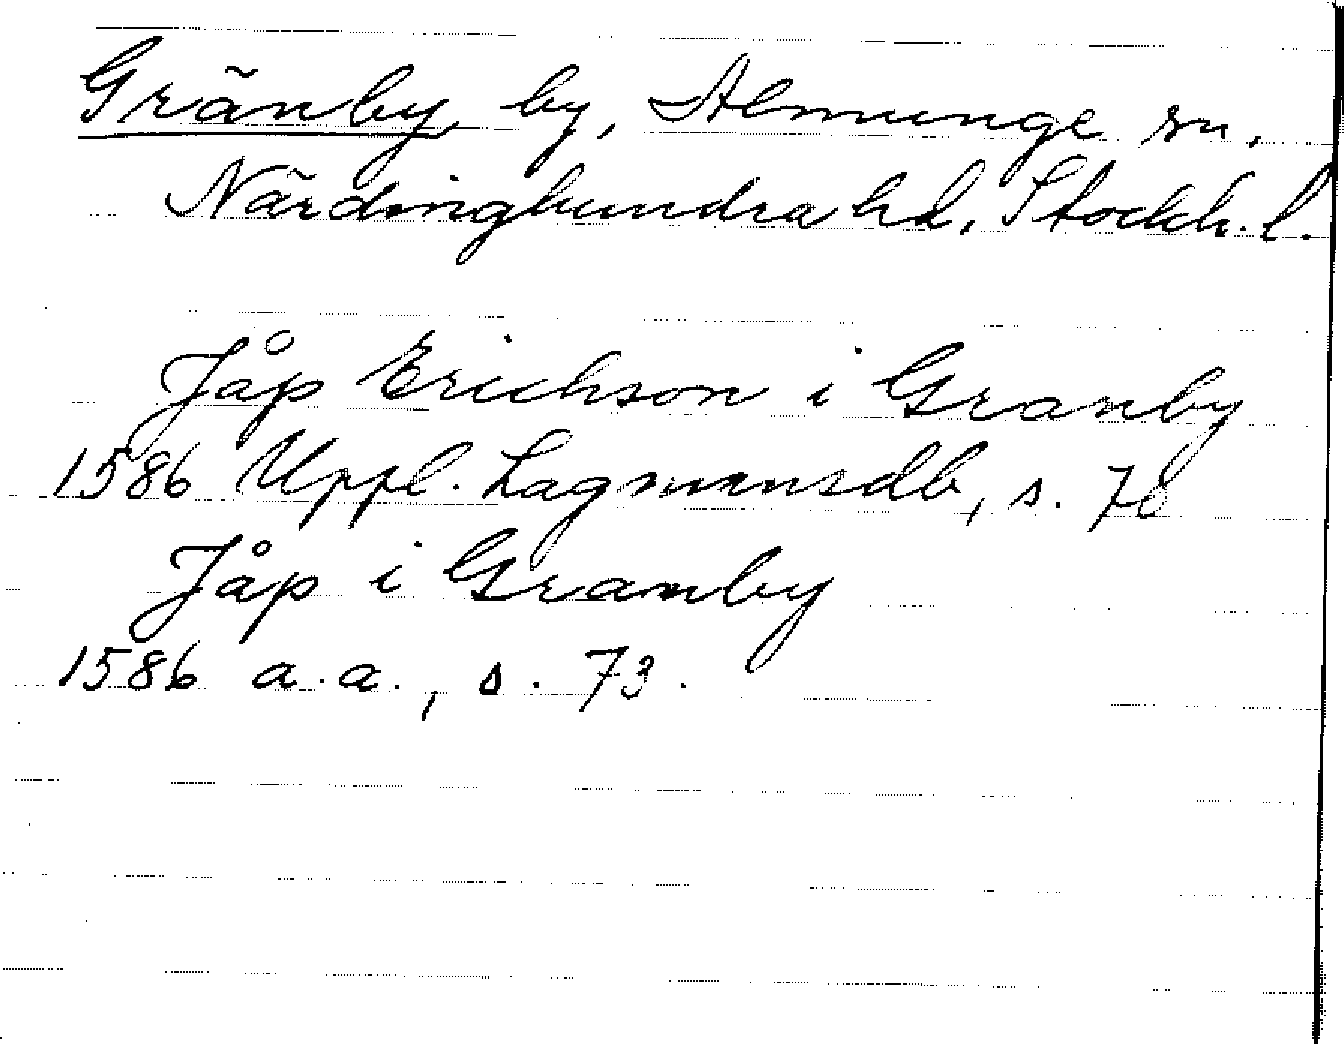 Gränby, by, Almunge sn.
Närdinghundra hd, Stockh. l.
Jåp Erichson i Granby
1586 Uppl. Lagmansdb, s. 70
Jåp i Granby
1586 a.a., s. 73.